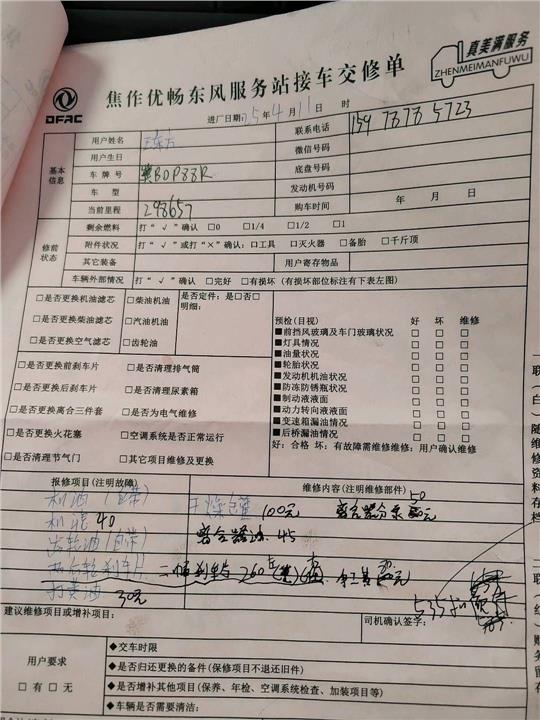 真美满服务
ZHENMEIMANFUWU
DFAC
焦作优畅东风服务站接车交修单
进厂日期: 25年4月11日 时
基本信息
用户姓名
联系电话 159 7878 5723
用户生日
微信号码
车牌号 冀B0P88R
底盘号码
车型
发动机号码
当前里程 298657
购车时间 年 月 日
修前状态
剩余燃料 打“√”确认 □0 □1/4 □1/2 □1
附件状况 打“√”或打“×”确认:□工具 □灭火器 □备胎 □千斤顶
其它装备
用户寄存物品
车辆外部情况 打“√”确认 □完好 □有损坏 (有损坏部位标注有下表左图)
□是否更换机油滤芯
□柴油机油
是否定件: 是□否□
明细:
□是否更换柴油滤芯
□汽油机油
□是否更换空气滤芯
□齿轮油
预检(目视) 好 坏 维修
■前挡风玻璃及车门玻璃状况 □ □ □
■灯具情况 □ □ □
■油量状况 □ □ □
■轮胎状况 □ □ □
■发动机机油状况 □ □ □
■防冻防锈瓶状况 □ □ □
■制动液液面 □ □ □
■动力转向液液面 □ □ □
■变速箱漏油情况 □ □ □
■后桥漏油情况 □ □ □
好: 合格 坏: 有故障需维修维修: 用户确认维修
□是否更换前刹车片 □是否清理排气筒
□是否更换后刹车片 □是否清理尿素箱
□是否更换离合三件套 □是否为电气维修
□是否更换火花塞 □空调系统是否正常运行
□是否清理节气门 □其它项目维修及更换
报修项目(注明故障)
维修内容(注明维修部件)
机油(自带)
干燥罐 100元
50
机滤 40
齿轮油(自带)
离合器油 45
260
打黄油 30元
535
建议维修项目或增补项目:
司机确认签字:
用户要求
□有 □无
◆交车时限
◆是否归还更换的备件(保修项目不退还旧件)
◆是否增补其他项目(保养、年检、空调系统检查、加装项目等)
◆车辆是否需要清洁: